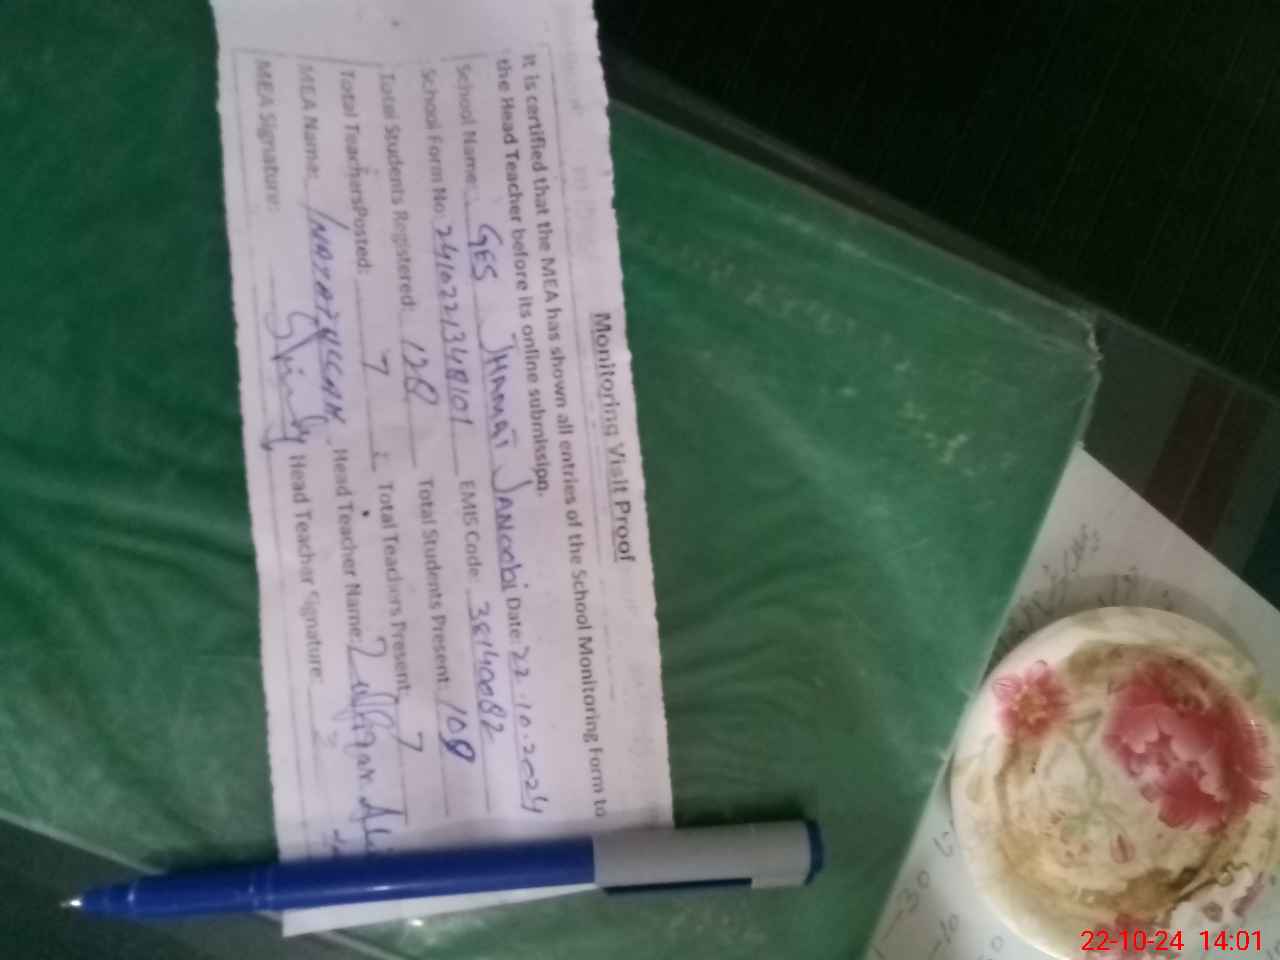 Monitoring Visit Proof
It is certified that the MEA has shown all entries of the School Monitoring Form to
the Head Teacher before its online submission.
School Name: GES JHAMAT JANOOBI Date: 22.10.2024
School Form No: 2410221348101 EMIS Code: 38140082
Total Students Registered: 128 Total Students Present: 109
Total Teachers Posted: 7 Total Teachers Present: 7
MEA Name: Head Teacher Name: Zulfiqar Ali
MEA Signature: Head Teacher Signature:
22-10-24 14:01